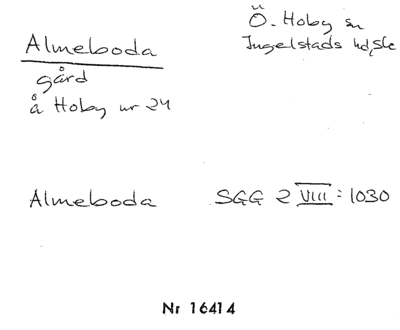 Almeboda
gård
å Hoby nr 24
Ö. Hoby sn
Ingelstads hd, Sk
Almeboda SGG 2 VIII: 1030
Nr 16414